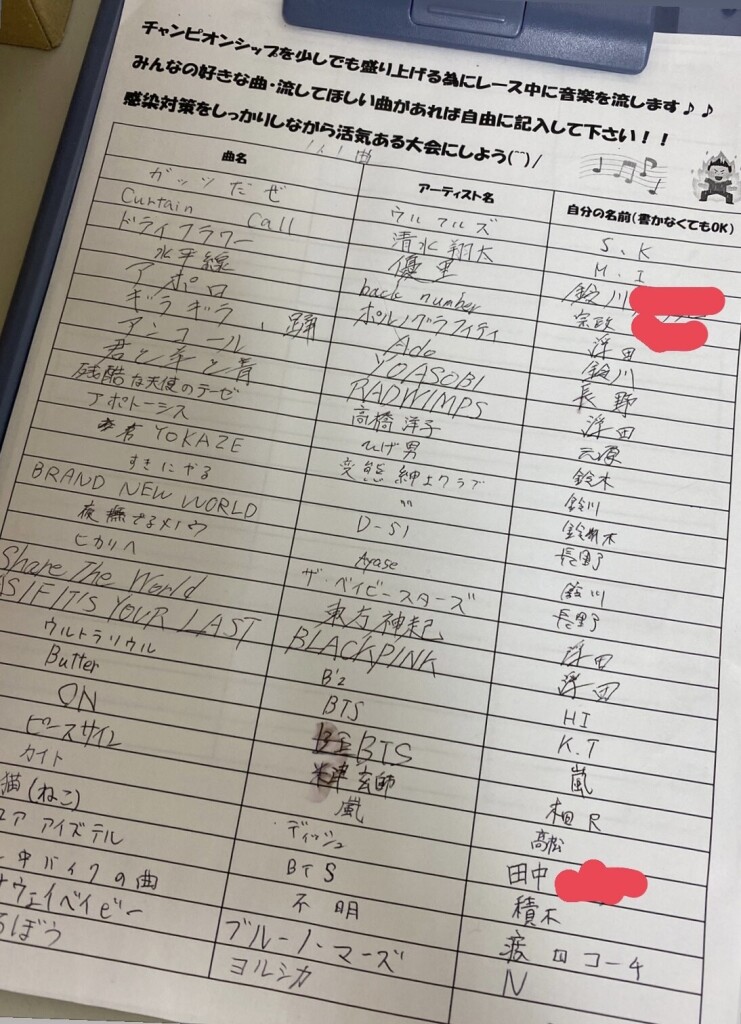 チャンピオンシップを少しでも盛り上げる為にレース中に音楽を流します♪♪
みんなの好きな曲・流してほしい曲があれば自由に記入して下さい！！
感染対策をしっかりしながら活気ある大会にしよう(^^)/
1人1曲
曲名 アーティスト名 自分の名前(書かなくてもOK)
ガッツだぜ ウルフルズ S.K
Curtain Call 清水翔太 M.I
ドライフラワー 優里 鈴川
水平線 back number 宗政
アポロ ポルノグラフィティ 浮田
ギラギラ、踊 Ado 鈴川
アンコール YOASOBI 長野
君と羊と青 RADWIMPS 浮田
残酷な天使のテーゼ 高橋洋子
アポトーシス ひげ男 鈴木
YOKAZE 変態紳士クラブ 鈴川
すきにやる 〃
BRAND NEW WORLD D-51 長野
夜撫でるメノウ Ayase 鈴川
ヒカリへ ザ・ベイビースターズ 長野
Share The World 東方神起 浮田
AS IF IT'S YOUR LAST BLACKPINK 浮田
ウルトラソウル B'z HI
Butter BTS K.T
ON BTS 嵐
ピースサイン 米津玄師
カイト 嵐 高松
猫(ねこ) ディッシュ 田中
アイズテル BTS
中バイクの曲 不明
ウェイベイビー ブルーノ・マーズ コーチ
ろぼう ヨルシカ N